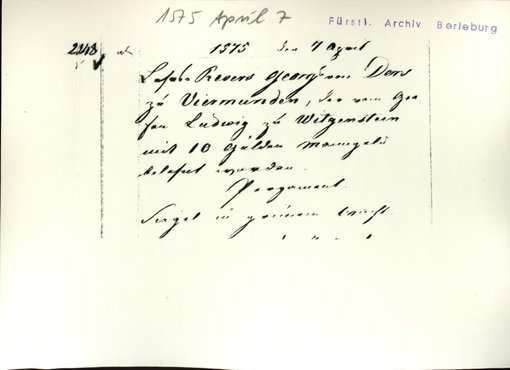 1575 April 7
Fürstl. Archiv Berleburg
2343 1575 den 7 April
Lehns Revers Georgs von Ders
zu Viermünden, der vom Gra
fen Ludwig zu Witgenstein
mit 10 Gulden manngeld
belehnt worden.
Pergament.
Siegel in grünem Wachs.